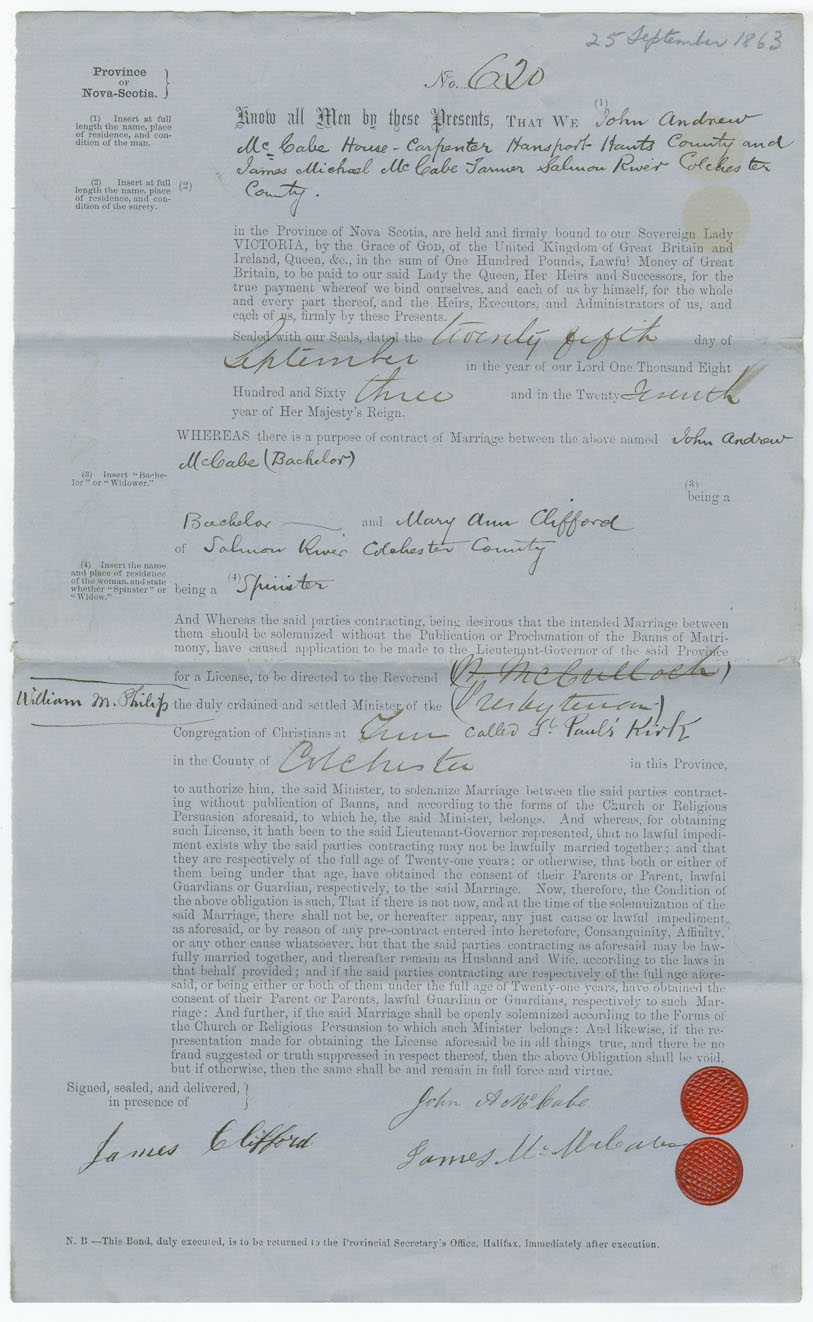 25 September 1863
Province
OF
Nova-Scotia.
No. 620
(1) Insert at full
length the name, place
of residence, and con-
dition of the man.
Know all Men by these Presents, THAT WE (1) John Andrew
McCabe House-Carpenter Hansport Hants County and
James Michael McCabe Farmer Salmon River Colchester
(2) Insert at full
length the name, place
of residence, and con-
dition of the surety.
(2) County.
in the Province of Nova Scotia, are held and firmly bound to our Sovereign Lady
VICTORIA, by the Grace of GOD, of the United Kingdom of Great Britain and
Ireland, Queen, &c., in the sum of One Hundred Pounds, Lawful Money of Great
Britain, to be paid to our said Lady the Queen, Her Heirs and Successors, for the
true payment whereof we bind ourselves, and each of us by himself, for the whole
and every part thereof, and the Heirs, Executors, and Administrators of us, and
each of us, firmly by these Presents.
Sealed with our Seals, dated the twenty fifth day of
September in the year of our Lord One Thousand Eight
Hundred and Sixty three and in the Twenty Seventh
year of Her Majesty's Reign.
WHEREAS there is a purpose of contract of Marriage between the above named John Andrew
McCabe (Bachelor)
(3) Insert "Bache-
lor" or "Widower."
(3)
being a
Bachelor and Mary Ann Clifford
of Salmon River Colchester County
(4) Insert the name
and place of residence
of the woman, and state
whether "Spinster" or
"Widow."
being a (4) Spinster
And Whereas the said parties contracting, being desirous that the intended Marriage between
them should be solemnized without the Publication or Proclamation of the Banns of Matri-
mony, have caused application to be made to the Lieutenant-Governor of the said Province
for a License, to be directed to the Reverend (W McCulloch)
William M. Philip the duly ordained and settled Minister of the (Presbyterian)
Congregation of Christians at Truro called St. Paul's Kirk
in the County of Colchester in this Province,
to authorize him, the said Minister, to solemnize Marriage between the said parties contract-
ing without publication of Banns, and according to the forms of the Church or Religious
Persuasion aforesaid, to which he, the said Minister, belongs. And whereas, for obtaining
such License, it hath been to the said Lieutenant-Governor represented, that no lawful impedi-
ment exists why the said parties contracting may not be lawfully married together; and that
they are respectively of the full age of Twenty-one years; or otherwise, that both or either of
them being under that age, have obtained the consent of their Parents or Parent, lawful
Guardians or Guardian, respectively, to the said Marriage. Now, therefore, the Condition of
the above obligation is such, That if there is not now, and at the time of the solemnization of the
said Marriage, there shall not be, or hereafter appear, any just cause or lawful impediment
as aforesaid, or by reason of any pre-contract entered into heretofore, Consanguinity, Affinity,
or any other cause whatsoever, but that the said parties contracting as aforesaid may be law-
fully married together, and thereafter remain as Husband and Wife, according to the laws in
that behalf provided; and if the said parties contracting are respectively of the full age afore-
said, or being either or both of them under the full age of Twenty-one years, have obtained the
consent of their Parent or Parents, lawful Guardian or Guardians, respectively to such Mar-
riage: And further, if the said Marriage shall be openly solemnized according to the Forms of
the Church or Religious Persuasion to which such Minister belongs: And likewise, if the re-
presentation made for obtaining the License aforesaid be in all things true, and there be no
fraud suggested or truth suppressed in respect thereof, then the above Obligation shall be void,
but if otherwise, then the same shall be and remain in full force and virtue.
Signed, sealed, and delivered,
in presence of
John A McCabe
James Clifford
James Mc McCabe
N. B —This Bond, duly executed, is to be returned to the Provincial Secretary's Office, Halifax, immediately after execution.